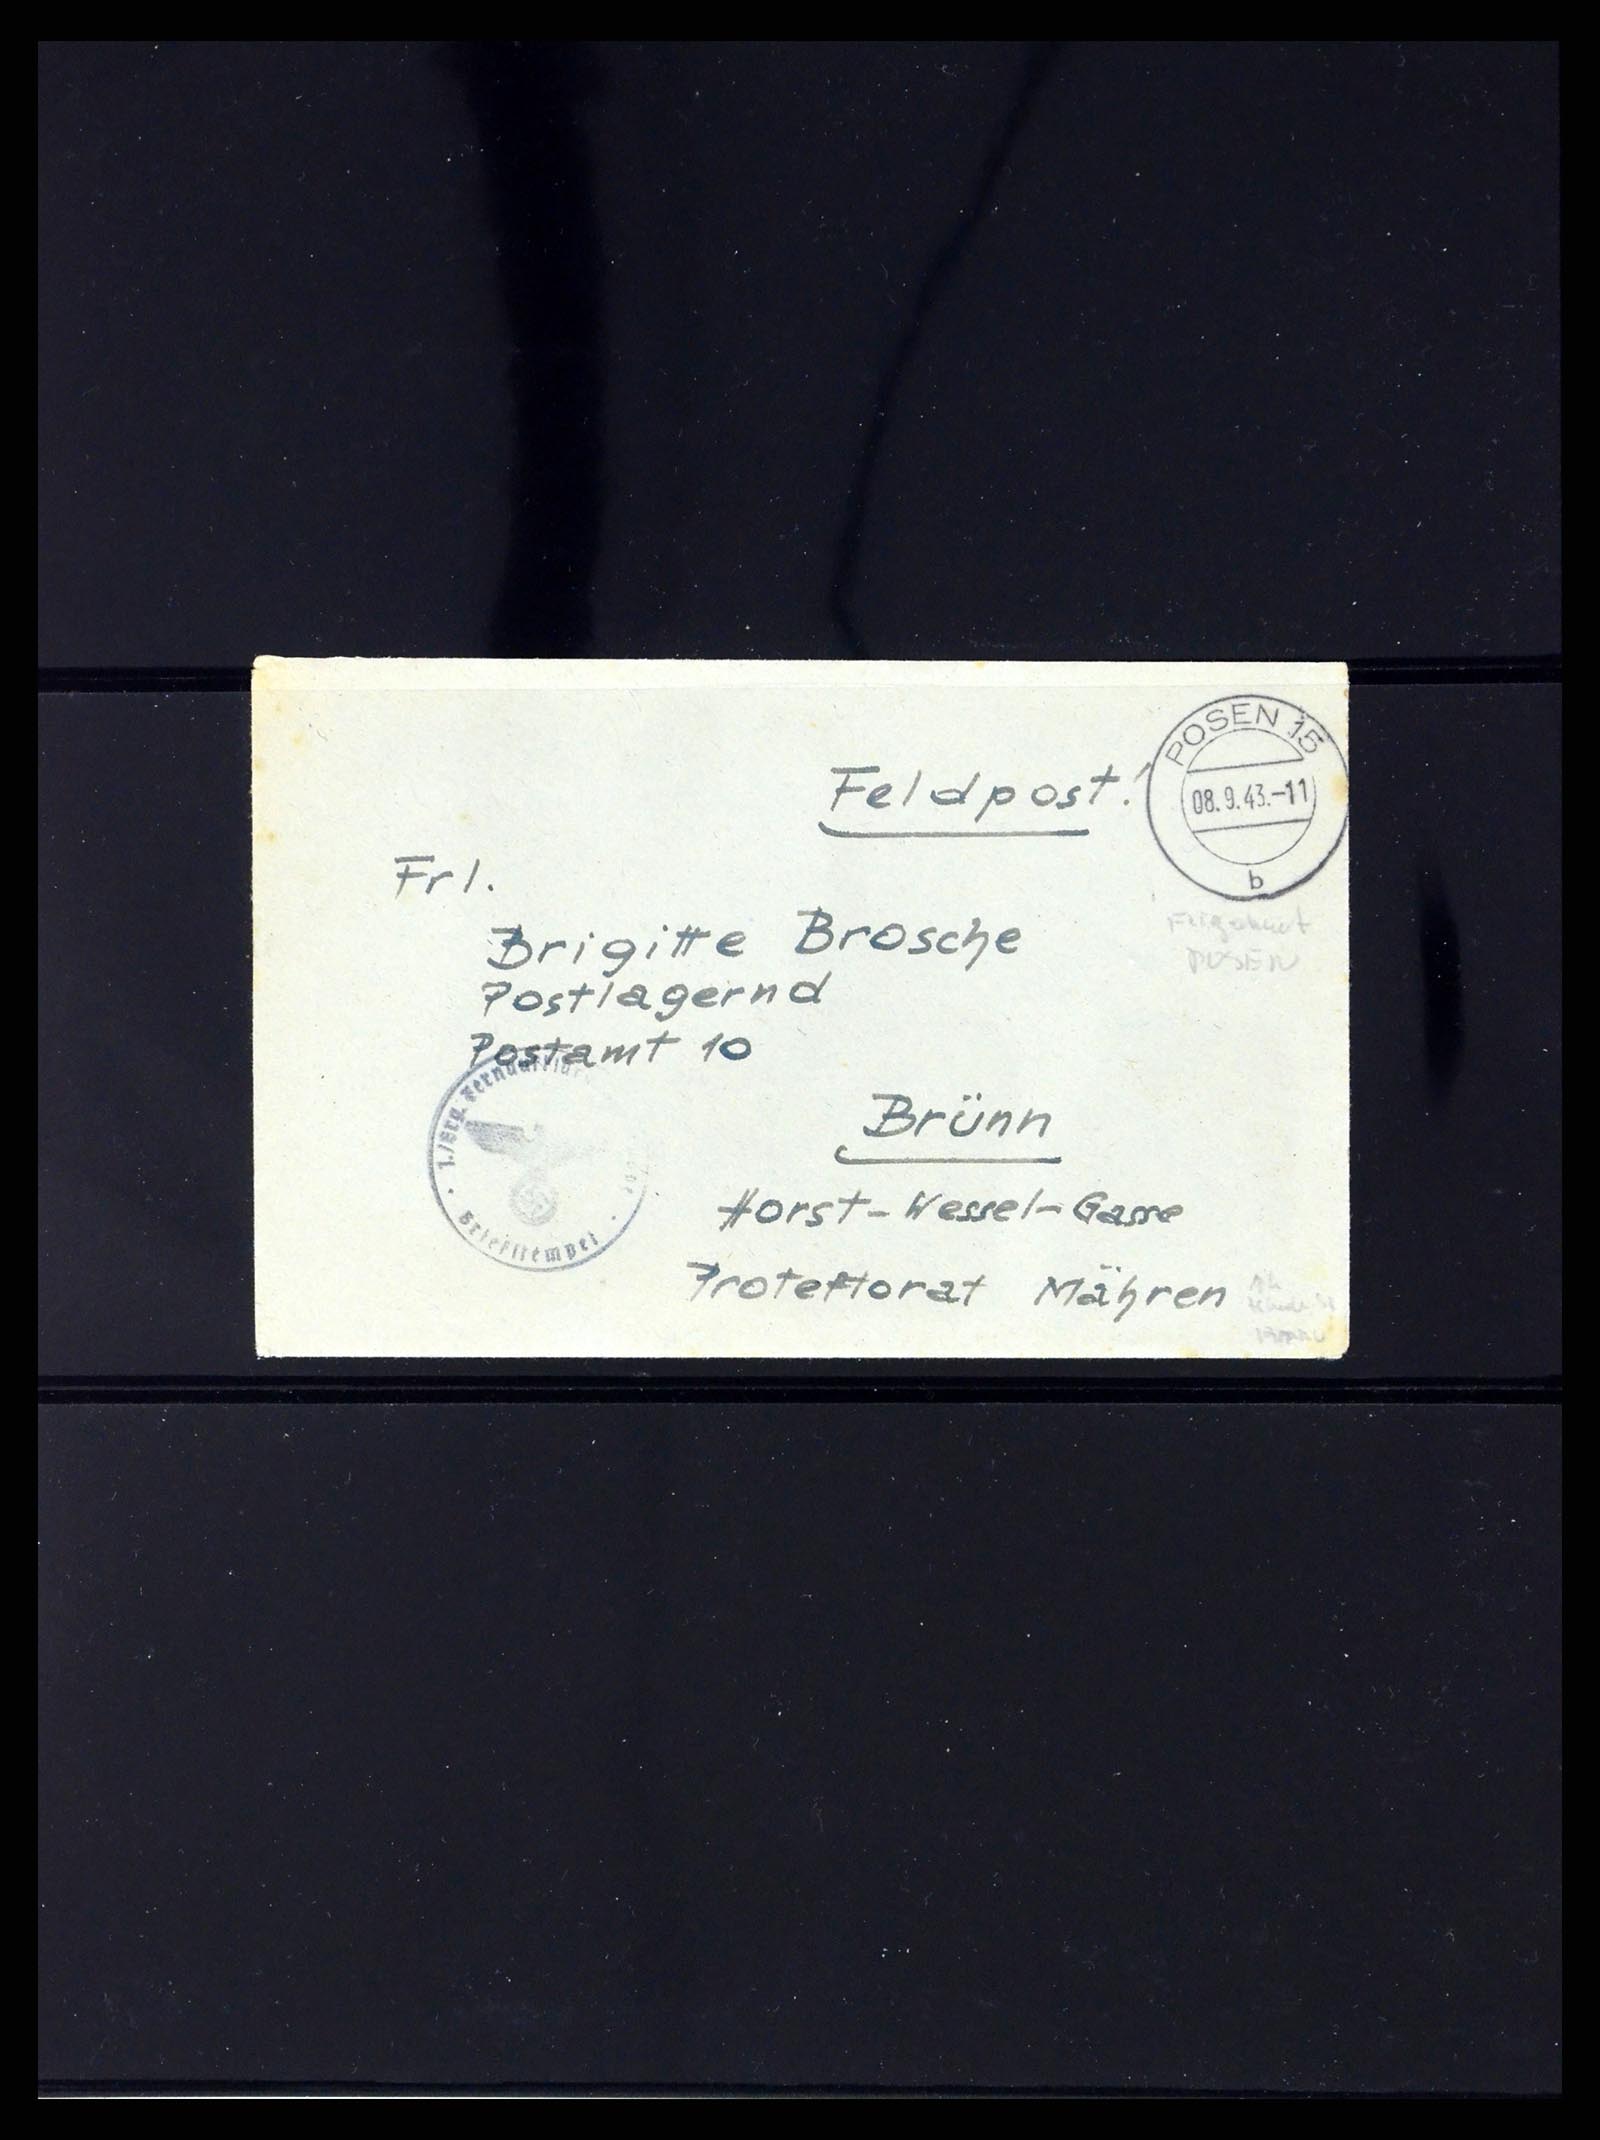 POSEN 15
08.9.43.-11
b
Feldpost!
Frl.
Brigitte Brosche
Postlagernd
Postamt 10
Brünn
Horst-Wessel-Gasse
Protektorat Mähren
POSEN
1./Erg.
Briefstempel